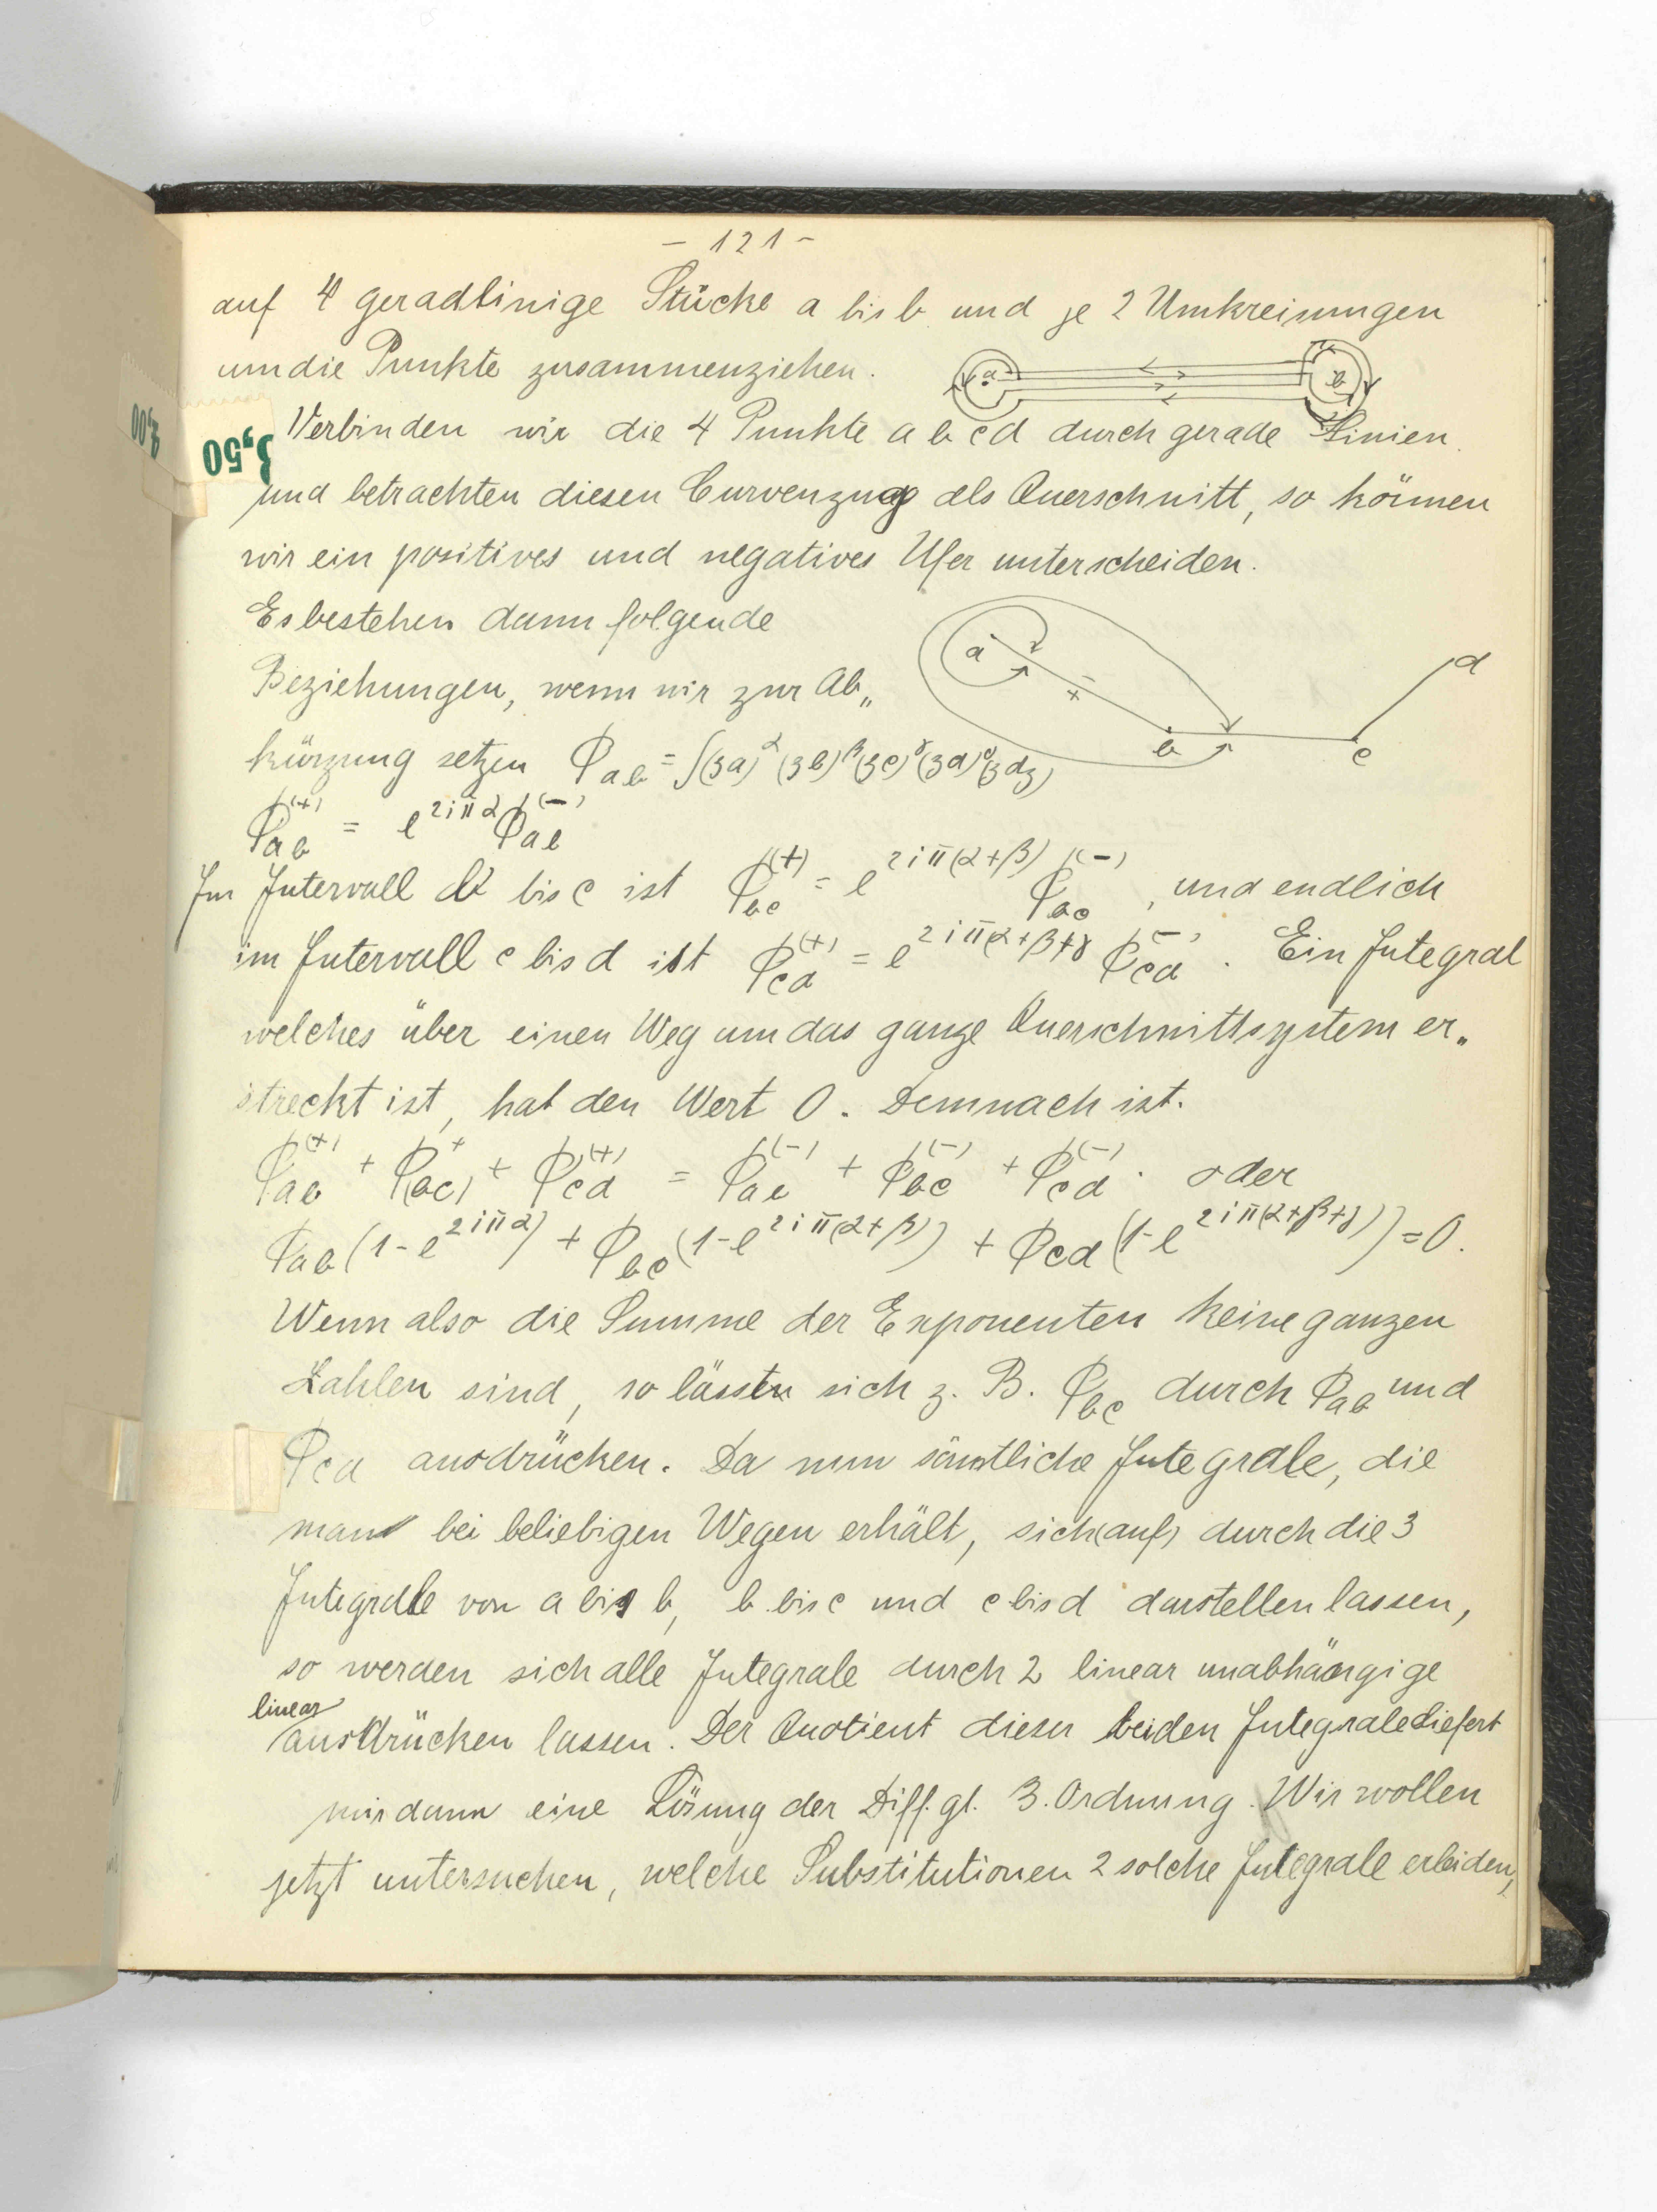 - 121 -
auf 4 geradlinige Stücke a bis b und je 2 Umkreisungen
um die Punkte zusammenziehen.
a b
Verbinden wir die 4 Punkte a b c d durch gerade Linien
3,50
und betrachten diesen Curvenzug als Querschnitt, so können
wir ein positives und negatives Ufer unterscheiden.
Es bestehen dann folgende
Beziehungen, wenn wir zur Ab„
a + - b c d
kürzung setzen Φ_ab = ∫(za)^α (zb)^β (zc)^γ (zd)^δ (z dz)
Φ_ab^(+) = e^{2iπα} Φ_ab^(-)
Im Intervall b bis c ist Φ_bc^(+) = e^{2iπ(α+β)} Φ_bc^(-), und endlich
im Intervall c bis d ist Φ_cd^(+) = e^{2iπ(α+β+γ} Φ_cd^(-). Ein Integral
welches über einen Weg um das ganze Querschnittsystem er„
streckt ist, hat den Wert 0. Demnach ist.
Φ_ab^(+) + Φ_(bc)^+ + Φ_cd^(+) = Φ_ab^(-) + Φ_bc^(-) + Φ_cd^(-). oder
Φ_ab(1-e^{2iπα}) + Φ_bc(1-e^{2iπ(α+β)}) + Φ_cd(1-e^{2iπ(α+β+γ)}) = 0.
Wenn also die Summe der Exponenten keine ganzen
Zahlen sind, so lässten sich z. B. Φ_bc durch Φ_ab und
Φ_cd ausdrücken. Da nun sämtliche Integrale, die
man bei beliebigen Wegen erhält, sich (auf) durch die 3
Integrale von a bis b, b bis c und c bis d darstellen lassen,
so werden sich alle Integrale durch 2 linear unabhängige
linear
ausdrücken lassen. Der Quotient dieser beiden Integrale liefert
mir dann eine Lösung der Diff. gl. 3. Ordnung. Wir wollen
jetzt untersuchen, welche Substitutionen 2 solche Integrale erleiden,